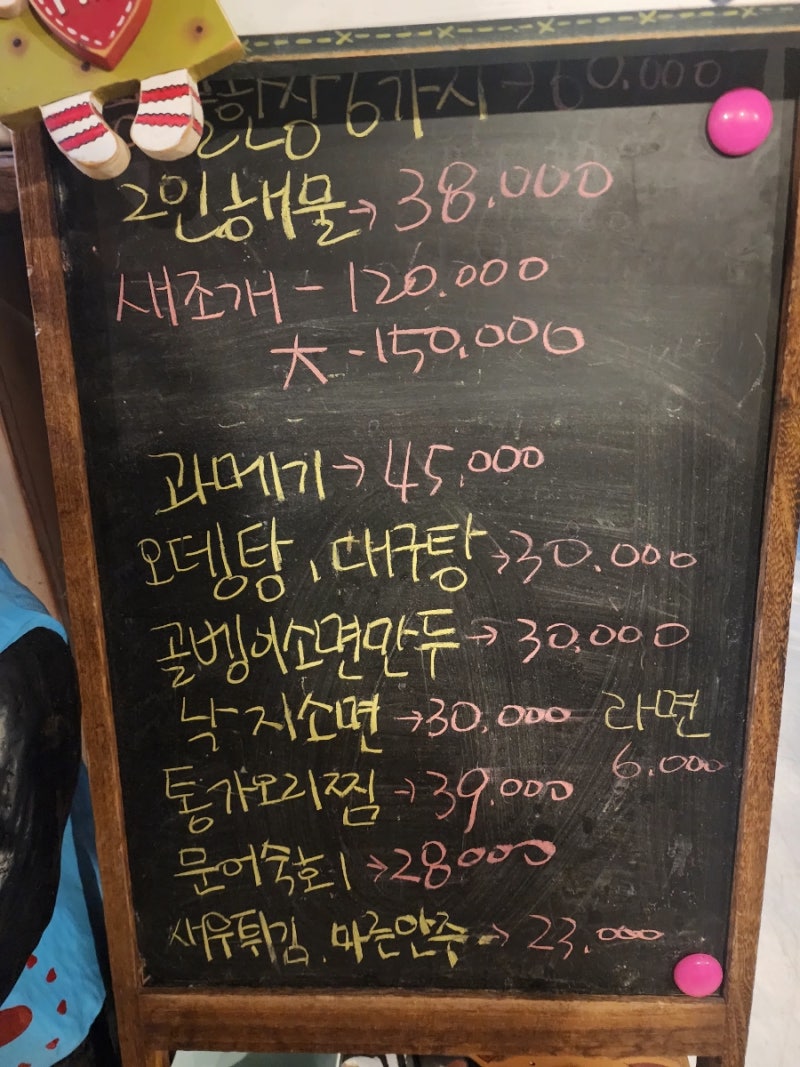 6가지 → 60.000
2인해물 → 38.000
새조개 - 120.000
大 - 150.000
과메기 → 45.000
오뎅탕, 대구탕 → 30.000
골벵이소면만두 → 30.000
낙지소면 → 30.000
라면
6.000
통가오리찜 → 39.000
문어숙회 → 28000
새우튀김, 마른안주 → 23.000